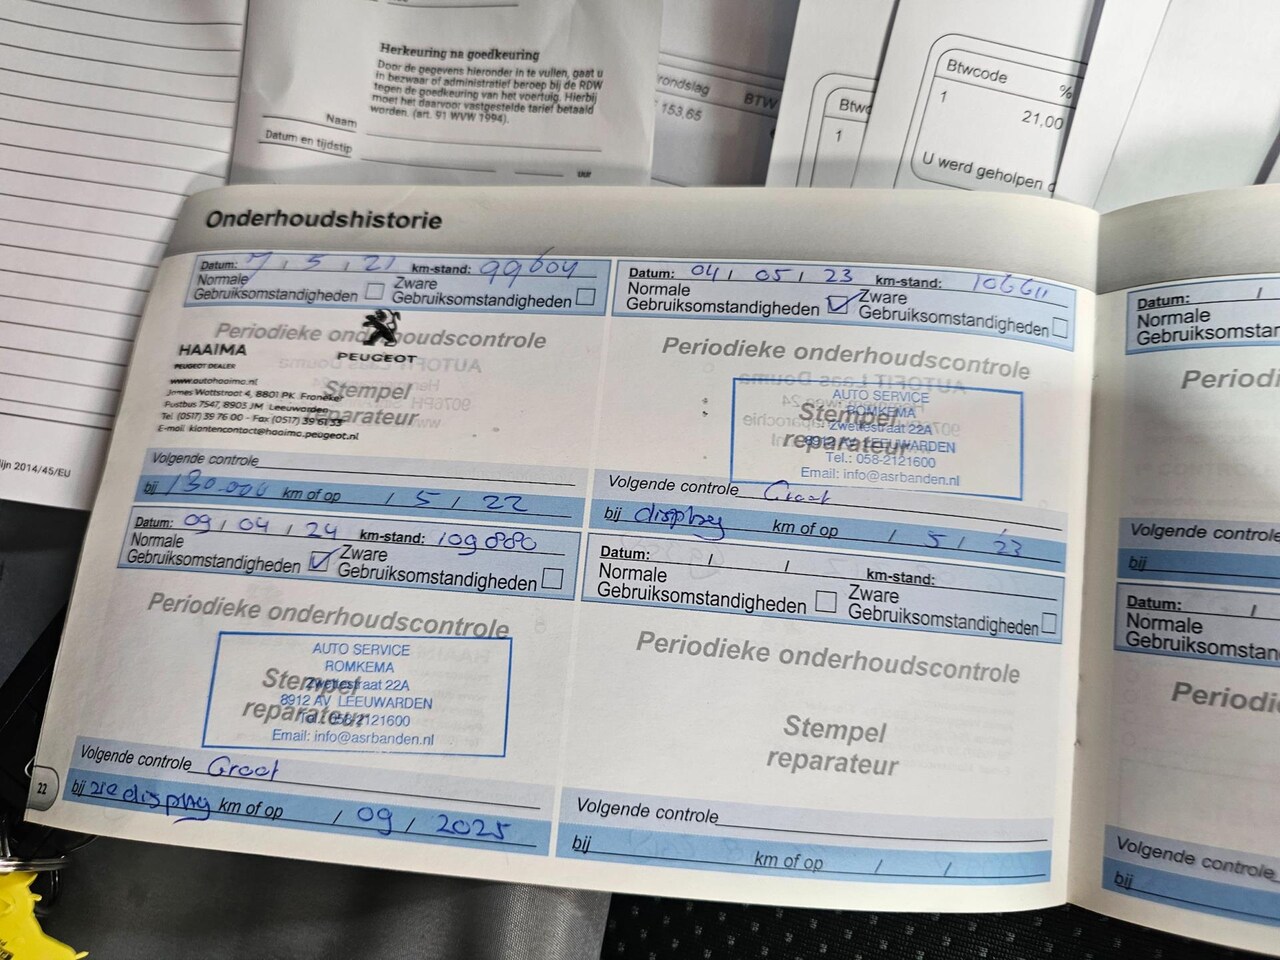 Herkeuring na goedkeuring
Door de gegevens hieronder in te vullen, gaat u
in bezwaar of administratief beroep bij de RDW
tegen de goedkeuring van het voertuig. Hierbij
moet het daarvoor vastgestelde tarief betaald
worden. (art. 91 WVW 1994).
Naam
Datum en tijdstip
uur
rondslag BTW
153,65
Btwc
1
Btwcode %
1 21,00
U werd geholpen d
ijn 2014/45/EU
Onderhoudshistorie
Datum: 7 / 5 / 21 km-stand: 99604
Normale
Gebruiksomstandigheden
Zware
Gebruiksomstandigheden
Periodieke onderhoudscontrole
HAAIMA
PEUGEOT DEALER
PEUGEOT
www.autohaaima.nl
James Wattstraat 4, 8801 PK Franeker
Postbus 7547, 8903 JM Leeuwarden
Tel (0517) 39 76 00 - Fax (0517) 39 61 33
E-mail klantencontact@haaima.peugeot.nl
Stempel
reparateur
Volgende controle
bij 130.000 km of op / 5 / 22
Datum: 04 / 05 / 23 km-stand: 106611
Normale
Gebruiksomstandigheden
Zware
Gebruiksomstandigheden
Periodieke onderhoudscontrole
Stempel
reparateur
AUTO SERVICE
ROMKEMA
Zwettestraat 22A
8912 AV LEEUWARDEN
Tel.: 058-2121600
Email: info@asrbanden.nl
Volgende controle Groot
bij display km of op / 5 / 23
Datum: 09 / 04 / 24 km-stand: 109880
Normale
Gebruiksomstandigheden
Zware
Gebruiksomstandigheden
Periodieke onderhoudscontrole
Stempel
reparateur
AUTO SERVICE
ROMKEMA
Zwettestraat 22A
8912 AV LEEUWARDEN
Tel.: 058-2121600
Email: info@asrbanden.nl
Volgende controle Groot
bij zie display km of op / 09 / 2025
Datum: / / km-stand:
Normale
Gebruiksomstandigheden
Zware
Gebruiksomstandigheden
Periodieke onderhoudscontrole
Stempel
reparateur
Volgende controle
bij km of op / /
22
Datum: /
Normale
Gebruiksomstan
Periodi
Volgende controle
bij
Datum: /
Normale
Gebruiksomstan
Periodi
Volgende controle
bij